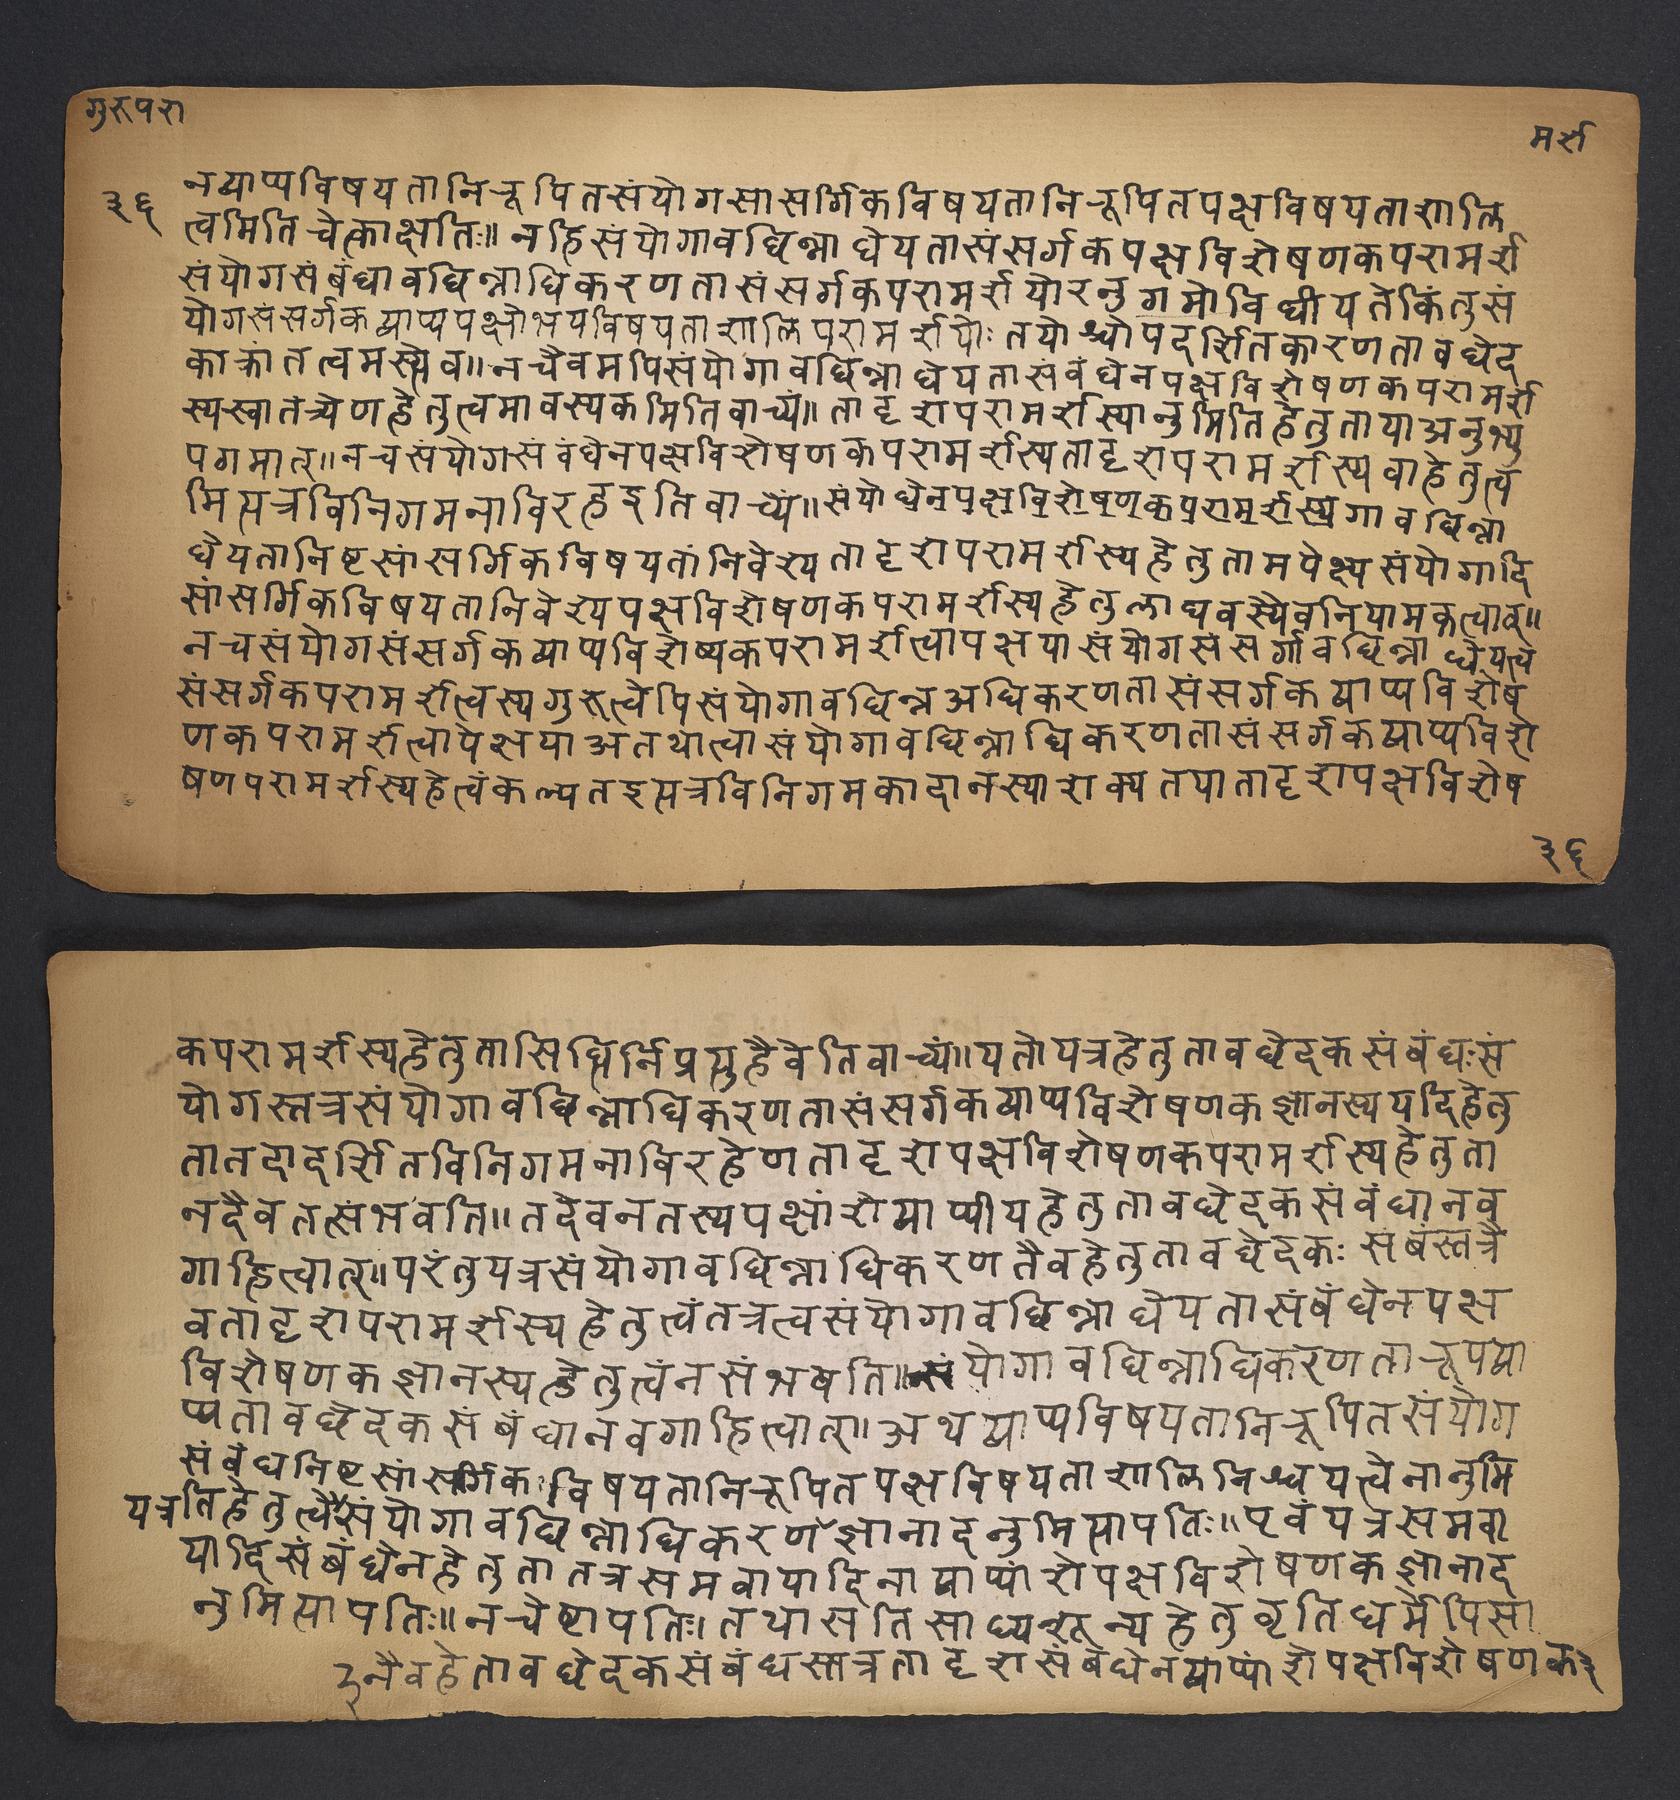 गुरूपरा
मर्श
३६
नव्याप्यविषयतानिरूपितसंयोगसासर्गिकविषयतानिरूपितपक्षविषयताशालि
त्वमितिचेत्काक्षतिः॥ नहिसंयोगावछिन्नाधेयतासंसर्गकपक्षविशेषणकपरामर्श
संयोगसंबंधावछिन्नाधिकरणतासंसर्गकपरामर्शयोरनुगमोविधीयतेकिंतुसं
योगसंसर्गकव्याप्यपक्षोभयविषयताशालिपरामर्शयोः तयोश्चोपदर्शितकारणतावछेद
काक्रांतत्वमस्त्येव॥ नचैवमपिसंयोगावछिन्नाधेयतासंवंधेनपक्षविशेषणकपरामर्श
स्यस्वातंत्र्येणहेतुत्वमावस्यकमितिवाच्यं॥ तादृशपरामर्शस्यानुमितिहेतुतायाअनुभ्यु
पगमात्॥ नचसंयोगसंवंधेनपक्षविशेषणकपरामर्शस्यतादृशपरामर्शस्यवाहेतुत्व
मित्यत्रविनिगमनाविरहइतिवाच्यं॥ संयोधेनपक्षविशेषणकपरामर्शस्यगावछिन्ना
धेयतानिष्टसांसर्गिकविषयतांनिवेश्यतादृशपरामर्शस्यहेतुतामपेक्ष्यसंयोगादि
सांसर्गिकविषयतानिवेश्यपक्षविशेषणकपरामर्शस्यहेतुलाघवस्यैवनियामकत्वात्॥
नचसंयोगसंसर्गकव्याप्यविशेष्यकपरामर्शत्वापक्षयासंयोगसंसर्गावछिन्नाधेयत्व
संसर्गकपरामर्शत्वस्यगुरूत्वेपिसंयोगावछिन्नअधिकरणतासंसर्गकव्याप्यविशेष
णकपरामर्शत्वापेक्षयाअतथात्वासंयोगावछिन्नाधिकरणतासंसर्गकव्याप्यविशे
षणपरामर्शस्यहेत्वंकल्प्यतइत्यत्रविनिगमकादानस्याशक्यतयातादृशपक्षविशेष
३६
कपरामर्शस्यहेतुतासिद्धिर्निप्रत्यूहैवेतिवाच्यं॥ यतोयत्रहेतुतावछेदकसंबंधःसं
योगस्तत्रसंयोगावछिन्नाधिकरणतासंसर्गकव्याप्यविशेषणकज्ञानस्ययदिहेतु
तातदादर्शितविनिगमनाविरहेणतादृशपक्षविशेषणकपरामर्शस्यहेतुता
नदैवतत्संभवति॥ तदेवनतस्यपक्षांशेव्याप्यीयहेतुतावछेदकसंवंधानव
गाहित्वात्॥ परंतुयत्रसंयोगावछिन्नाधिकरणतैवहेतुतावछेदकः संबंस्तत्रै
वतादृशपरामर्शस्यहेतुत्वंतत्रत्वसंयोगावछिन्नाधेयतासंबंधेनपक्ष
विशेषणकज्ञानस्यहेतुत्वंनसंभवति॥ संयोगावछिन्नाधिकरणतारूपव्या
प्यतावछेदकसंबंधानवगाहित्वात्। अथव्याप्यविषयतानिरूपितसंयोग
संवंधनिष्टसांसर्गिकविषयतानिरूपितपक्षविषयताशालिनिश्चयत्वेनानुमि
यत्र
तिहेतुत्वेसंयोगावछिन्नाधिकरणज्ञानादनुमित्यापतिः॥ एवंयत्रसमवा
यादिसंबंधेनहेतुतातत्रसमवायादिनाव्याप्यांशेपक्षविशेषणकज्ञानाद
नुमित्यापतिः॥ नचेष्टापतिः। तथासतिसाध्यशून्यहेतुवृतिधर्मेपिसा
नैवहेतावछेदकसंबंधस्तत्रतादृशसंबंधेनव्याप्यांशेपक्षविशेषणक